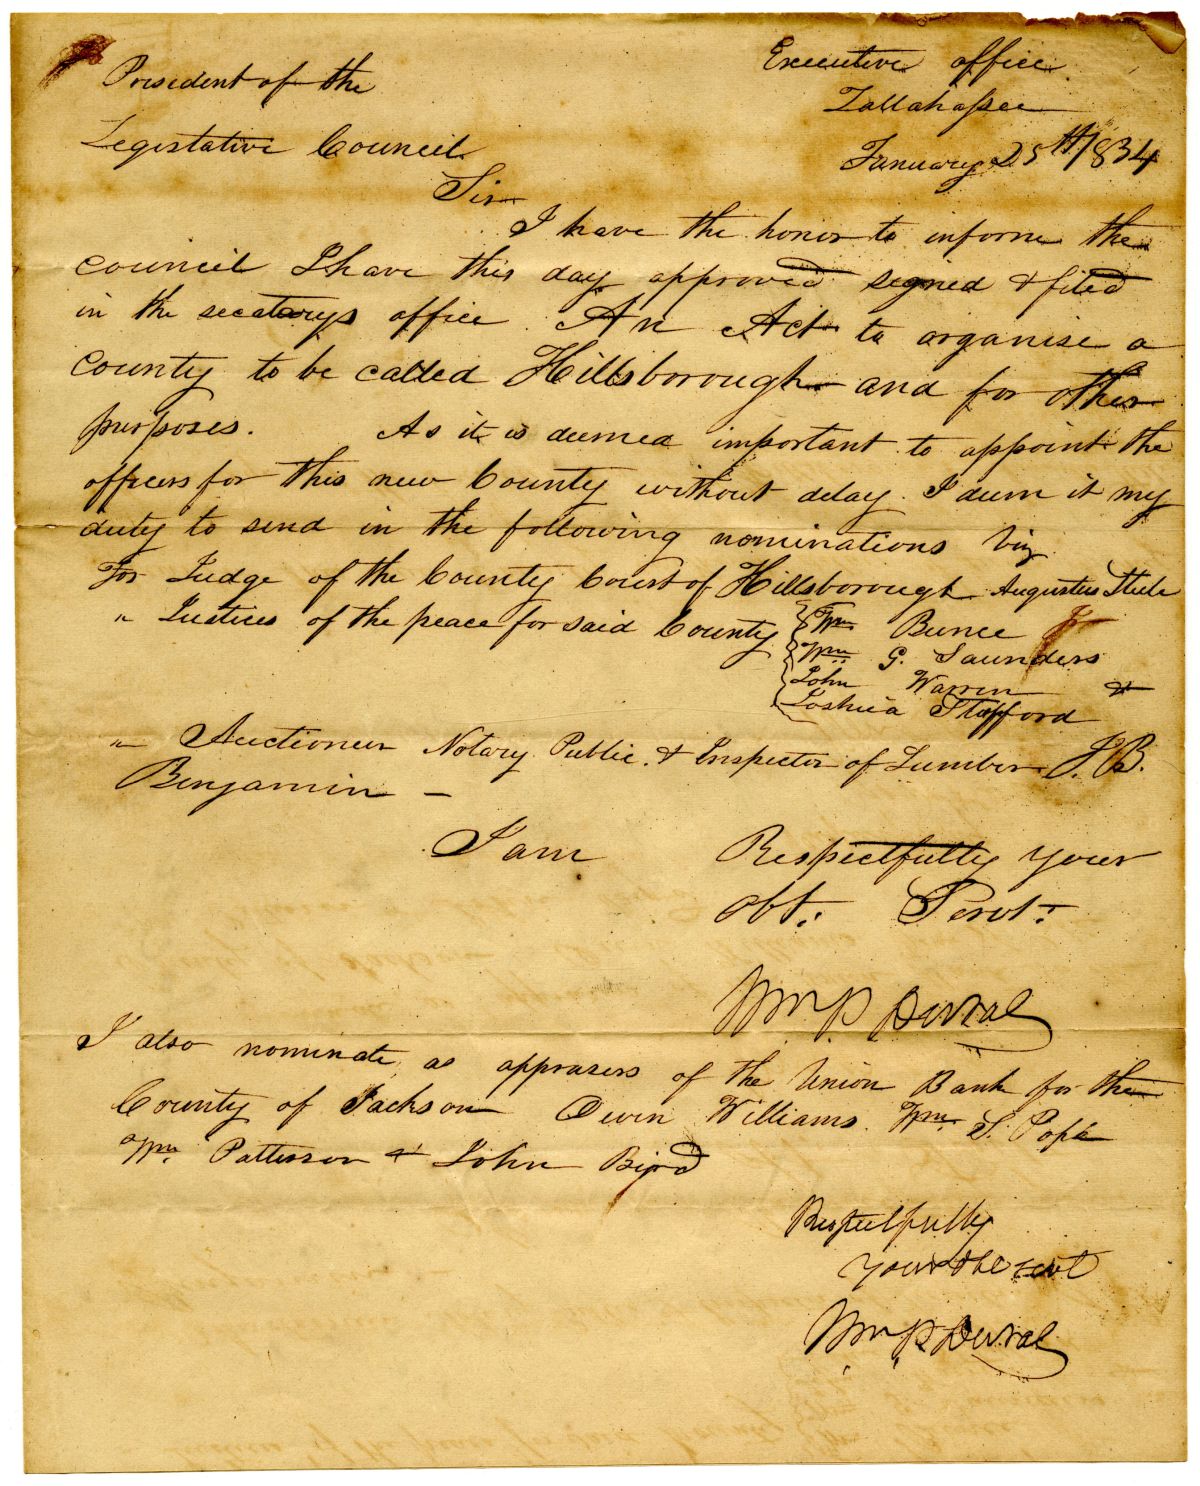 Executive office
Tallahassee
January 25th 1834
President of the
Legistative Council
Sir
I have the honor to inform the
Council I have this day approved signed & filed
in the secatarys office An Act to organise a
County to be called Hillsborough and for other
purposes. As it is deemed important to appoint the
officers for this new County without delay. I deem it my
duty to send in the following nominations Viz
For Judge of the County Court of Hillsborough Augustus Steele
" Justices of the peace for said County Wm Bunce Jr
Wm G. Saunders
John Warren &
Joshua Stafford
" Auctioneer Notary Public. & Inspector of Lumber J. B.
Benjamin —
I am Respectfully your
obt: Servt:
Wm P. Duval
I also nominate as apprasers of the Union Bank for the
County of Jackson Owen Williams. Wm. S. Pope
Wm. Patterson & John Bird
Respectfully
your obt servt
Wm P. Duval